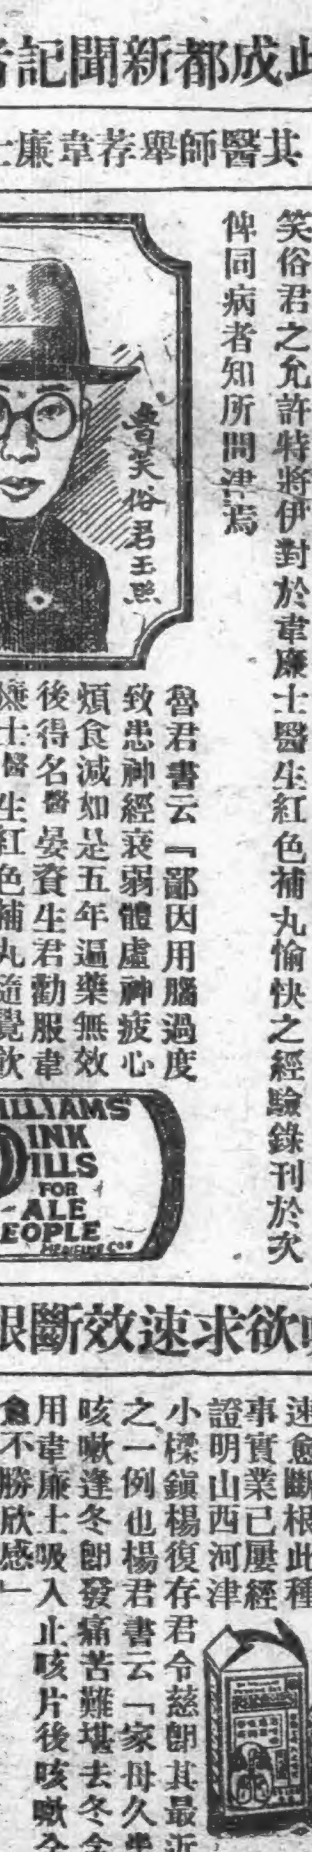 此成都新聞記者
其醫師舉荐韋廉士
笑俗君之允許特將伊對於韋廉士醫生紅色補丸愉快之經驗錄刊於次
俾同病者知所問津焉
魯笑俗君玉照
魯君書云『鄙因用腦過度
致患神經衰弱體虛神疲心
煩食減如是五年遍藥無效
後得名醫晏資生君勸服韋
廉士醫生紅色補丸隨覺飲
WILLIAMS
PINK
PILLS
FOR
PALE
PEOPLE
MEDICINE CO
欲求速效斷根
速愈斷根此種
事實業已屢經
證明山西河津
小樑鎮楊復存君令慈卽其最近
之一例也楊君書云「家母久患
咳嗽逢冬卽發痛苦難堪去冬令
用韋廉士吸入止咳片後咳嗽全
愈不勝欣感」